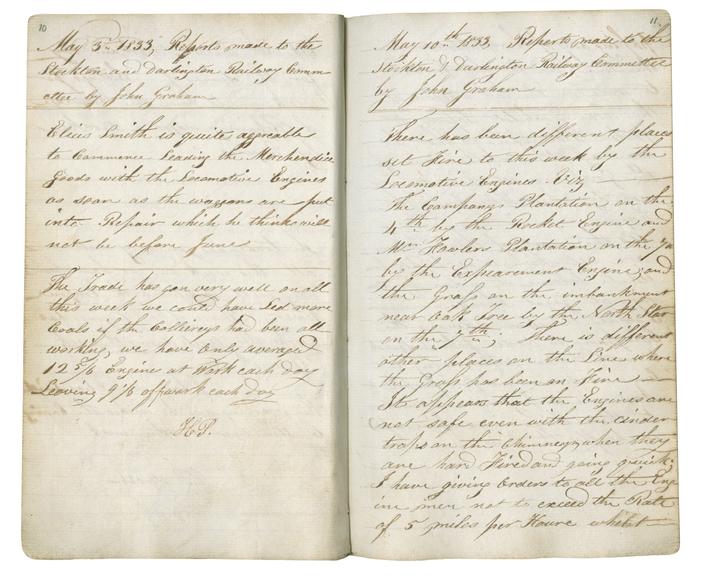 10
May 3rd 1833, Reports made to the
Stockton and Darlington Railway Comm-
ettee by John Graham
Elies Smith is quite agreeable
to Commence Leading the Merchendise
Goods with the Locomotive Engines
as soon as the waggons are put
into Repair which he thinks will
not be before June
The Trade has gon very well on all
this week we could have Led more
Coals if the Collierys had been all
working, we have only averaged
12 5/6 Engines at Work each day
Leaving 9 1/6 off work each day
11
May 10th 1833. Reports made to the
Stockton & Darlington Railway Committee
by John Graham
There has been different places
set Fire to this week by the
Locomotive Engines. Viz
The Companys Plantation on the
4th by the Rocket Engine and
Wm Fowlers Plantation on the 7th
by the Expearement Engine; and
the Grass on the imbankment
near Oak Tree by the North Star
on the 7th; There is different
other places on the Line where
the Grass has been on Fire
Its appears that the Engines are
not safe even with the cinder
traps on the Chimneys, when they
are hard Fired and going quick;
I have giving Orders to all the Eng
ine men not to exceed the Rate
of 5 miles per Houre whilst